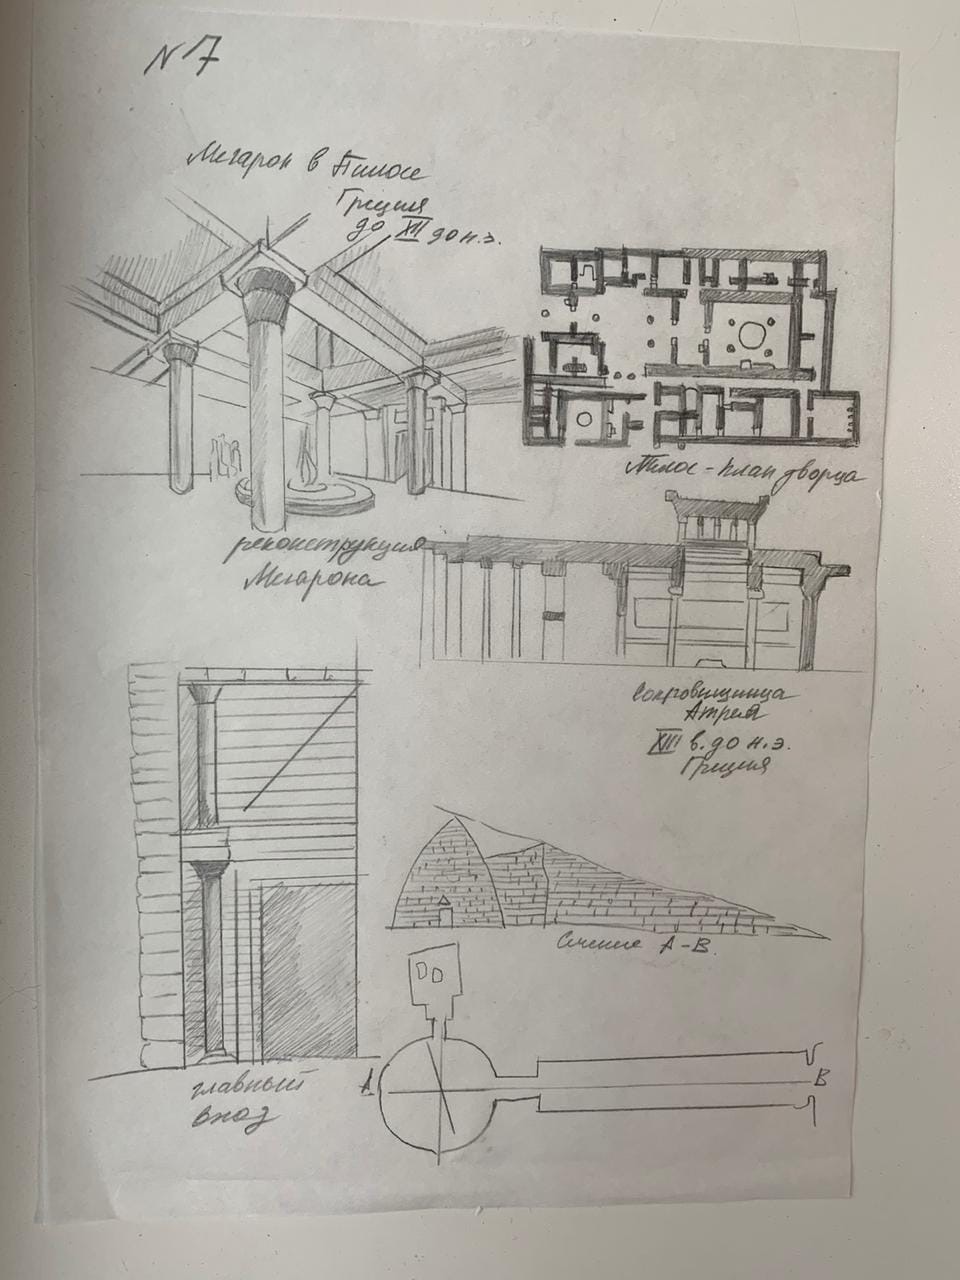 N 7
Мегарон в Пилосе
Греция
до XIII до н.э.
Пилос - план дворца
реконструкция
Мегарона
Сокровищница
Атрея
XIII в. до н.э.
Греция
Сечение А-В.
А
В
главный
вход